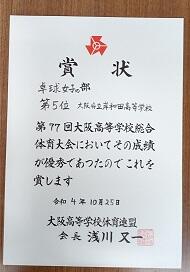 賞状
卓球女子の部
第5位 大阪府立岸和田高等学校
第77回大阪高等学校総合
体育大会においてその成績
が優秀であつたのでこれを
賞します
令和4年10月25日
大阪高等学校体育連盟
会長 浅川又一